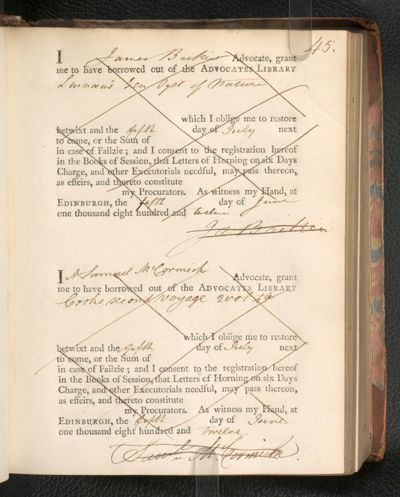 45.
I James Baillie Advocate, grant
me to have borrowed out of the ADVOCATES LIBRARY
Linnaeus's Gen Syst of Nature
which I oblige me to restore
betwixt and the fifth day of July next
to come, or the Sum of
in case of Failzie; and I consent to the registration hereof
in the Books of Session, that Letters of Horning on six Days
Charge, and other Executorials needful, may pass thereon,
as effeirs, and thereto constitute
my Procurators. As witness my Hand, at
EDINBURGH, the fifth day of June
one thousand eight hundred and twelve
Ja Baillie
I Mr Samuel McCormick Advocate, grant
me to have borrowed out of the ADVOCATES LIBRARY
Cooks second Voyage 2 vols 4to
which I oblige me to restore
betwixt and the fifth day of July next
to come, or the Sum of
in case of Failzie; and I consent to the registration hereof
in the Books of Session, that Letters of Horning on six Days
Charge, and other Executorials needful, may pass thereon,
as effeirs, and thereto constitute
my Procurators. As witness my Hand, at
EDINBURGH, the fifth day of June
one thousand eight hundred and twelve
Saml McCormick